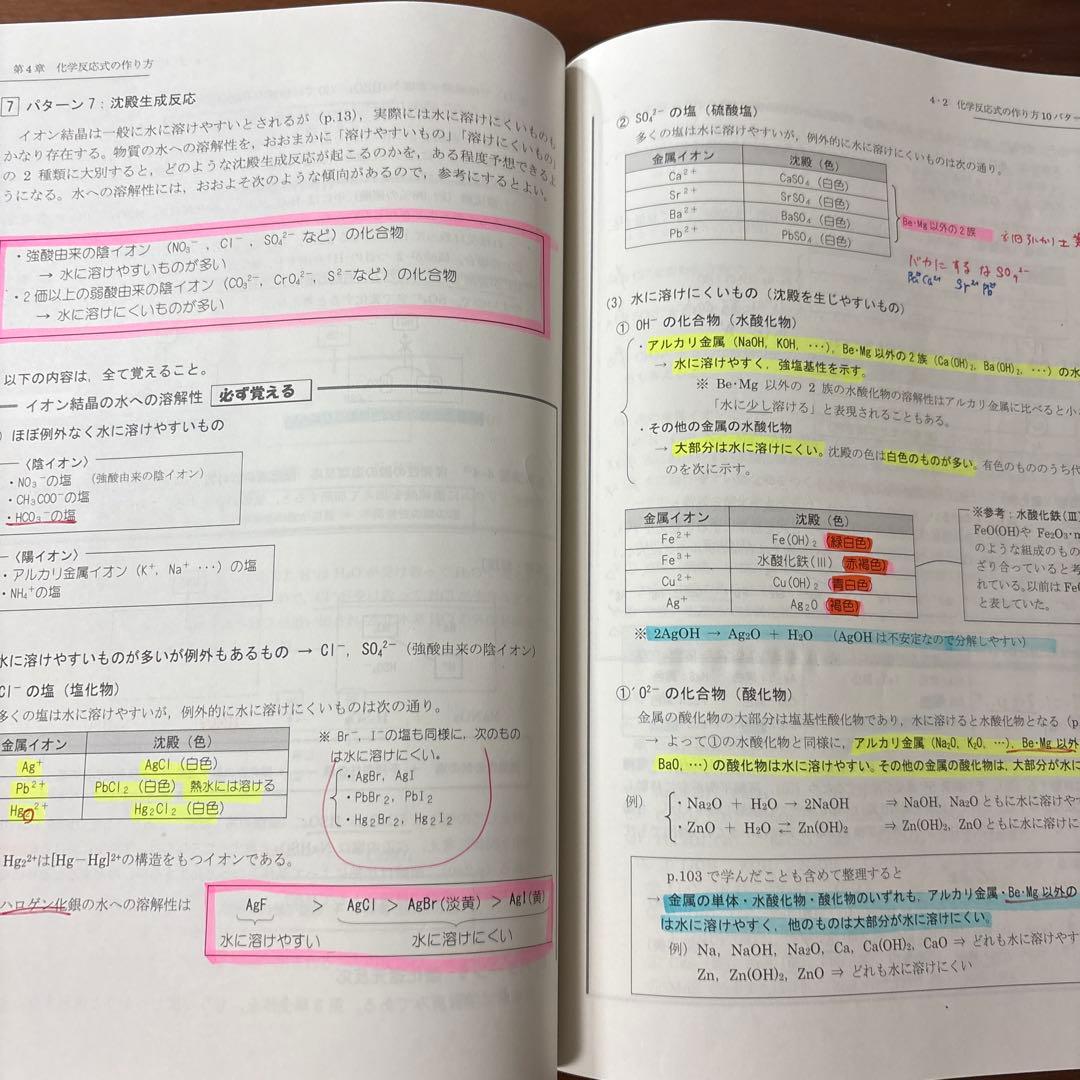 第4章 化学反応式の作り方
7 パターン7：沈殿生成反応
イオン結晶は一般に水に溶けやすいとされるが（p.13），実際には水に溶けにくいものも
かなり存在する。物質の水への溶解性を，おおまかに「溶けやすいもの」「溶けにくいもの」
の2種類に大別すると，どのような沈殿生成反応が起こるのかを，ある程度予想できるよ
うになる。水への溶解性には，おおよそ次のような傾向があるので，参考にするとよい。
・強酸由来の陰イオン（NO₃⁻，Cl⁻，SO₄²⁻ など）の化合物
→ 水に溶けやすいものが多い
・2価以上の弱酸由来の陰イオン（CO₃²⁻，CrO₄²⁻，S²⁻など）の化合物
→ 水に溶けにくいものが多い
以下の内容は，全て覚えること。
イオン結晶の水への溶解性 必ず覚える
）ほぼ例外なく水に溶けやすいもの
〈陰イオン〉
・NO₃⁻の塩 （強酸由来の陰イオン）
・CH₃COO⁻の塩
・HCO₃⁻の塩
〈陽イオン〉
・アルカリ金属イオン（K⁺，Na⁺ …）の塩
・NH₄⁺の塩
水に溶けやすいものが多いが例外もあるもの → Cl⁻，SO₄²⁻（強酸由来の陰イオン）
Cl⁻ の塩（塩化物）
多くの塩は水に溶けやすいが，例外的に水に溶けにくいものは次の通り。
金属イオン 沈殿（色）
Ag⁺ AgCl（白色）
Pb²⁺ PbCl₂（白色） 熱水には溶ける
Hg₂²⁺ Hg₂Cl₂（白色）
※ Br⁻，I⁻の塩も同様に，次のもの
は水に溶けにくい。
・AgBr，AgI
・PbBr₂，PbI₂
・Hg₂Br₂，Hg₂I₂
Hg₂²⁺は[Hg－Hg]²⁺の構造をもつイオンである。
ハロゲン化銀の水への溶解性は
AgF ＞ AgCl ＞ AgBr（淡黄）＞ AgI（黄）
水に溶けやすい 水に溶けにくい
4・2 化学反応式の作り方10パター
② SO₄²⁻ の塩（硫酸塩）
多くの塩は水に溶けやすいが，例外的に水に溶けにくいものは次の通り。
金属イオン 沈殿（色）
Ca²⁺ CaSO₄（白色）
Sr²⁺ SrSO₄（白色）
Ba²⁺ BaSO₄（白色）
Pb²⁺ PbSO₄（白色）
Be・Mg以外の2族
バカにするなSO₄²⁻
Ba²⁺ Ca²⁺ Sr²⁺ Pb²⁺
(3) 水に溶けにくいもの（沈殿を生じやすいもの）
① OH⁻ の化合物（水酸化物）
・アルカリ金属（NaOH，KOH，…），Be・Mg以外の2族（Ca(OH)₂，Ba(OH)₂，…）の水
→ 水に溶けやすく，強塩基性を示す。
※ Be・Mg 以外の2族の水酸化物の溶解性はアルカリ金属に比べると小さ
「水に少し溶ける」と表現されることもある。
・その他の金属の水酸化物
→ 大部分は水に溶けにくい。沈殿の色は白色のものが多い。有色のもののうち代
のを次に示す。
金属イオン 沈殿（色）
Fe²⁺ Fe(OH)₂（緑白色）
Fe³⁺ 水酸化鉄(Ⅲ)（赤褐色）
Cu²⁺ Cu(OH)₂（青白色）
Ag⁺ Ag₂O（褐色）
※参考：水酸化鉄(Ⅲ
FeO(OH)や Fe₂O₃・n
のような組成のもの
ざり合っていると考
れている。以前は Fe(
と表していた。
※ 2AgOH → Ag₂O ＋ H₂O （AgOHは不安定なので分解しやすい）
①′O²⁻ の化合物（酸化物）
金属の酸化物の大部分は塩基性酸化物であり，水に溶けると水酸化物となる（p.
→ よって①の水酸化物と同様に，アルカリ金属（Na₂O，K₂O，…），Be・Mg以外
BaO，…）の酸化物は水に溶けやすい。その他の金属の酸化物は，大部分が水に
例） ・Na₂O ＋ H₂O → 2NaOH ⇒ NaOH，Na₂O ともに水に溶けや
・ZnO ＋ H₂O ⇄ Zn(OH)₂ ⇒ Zn(OH)₂，ZnO ともに水に溶けに
p.103で学んだことも含めて整理すると
→ 金属の単体・水酸化物・酸化物のいずれも，アルカリ金属・Be・Mg以外の
は水に溶けやすく，他のものは大部分が水に溶けにくい。
例）Na，NaOH，Na₂O，Ca，Ca(OH)₂，CaO ⇒ どれも水に溶けやす
Zn，Zn(OH)₂，ZnO ⇒ どれも水に溶けにくい